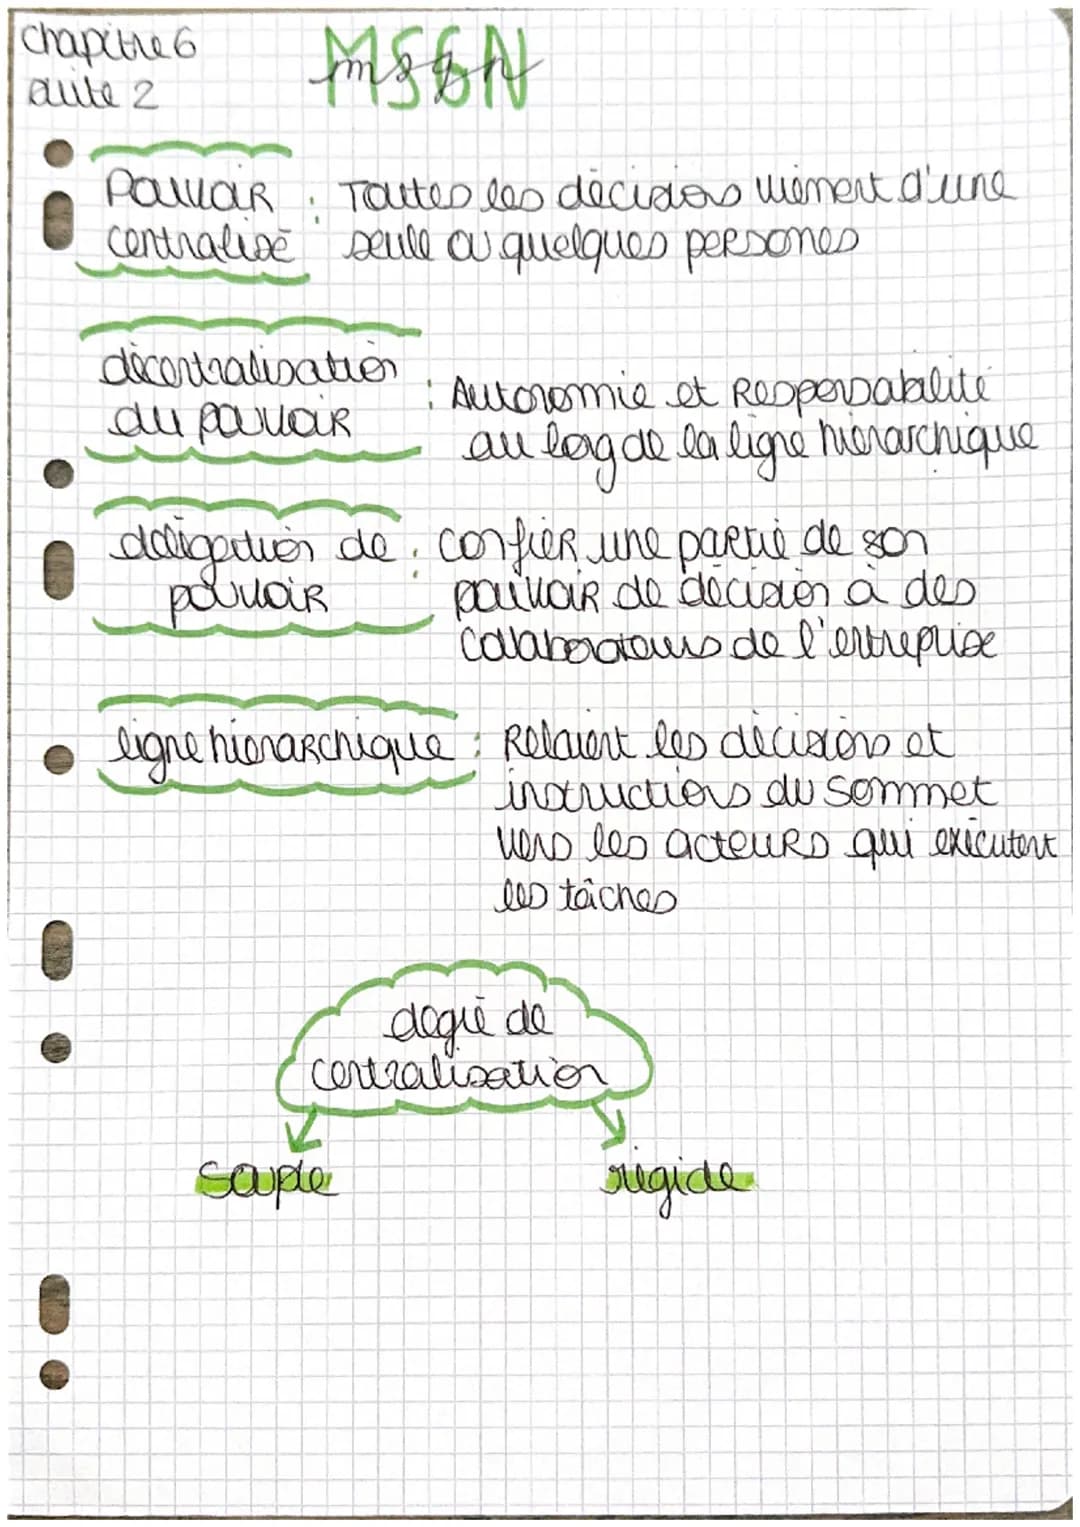 chapitre 6
suite 2
MSGN
msgn
Pouvoir : Toutes les décisions viennent d'une
centralisé seule ou quelques personnes
décentralisation
du pouvoir : Autonomie et Responsabilité
au long de la ligne hiérarchique
délégation de : confier une partie de son
pouvoir pouvoir de décision à des
collaborateurs de l'entreprise
ligne hiérarchique : Relaient les décisions et
instructions du sommet
vers les acteurs qui exécutent
les tâches
degré de
centralisation
souple rigide